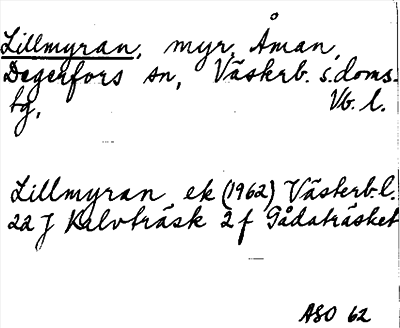 Lillmyran, myr, Åman,
Degerfors sn, Västerb. s. doms-
tg, Vb. l.
Lillmyran ek (1962) Västerb. l.
22 J Kalvträsk 2 f Gådaträsket
ASO 62